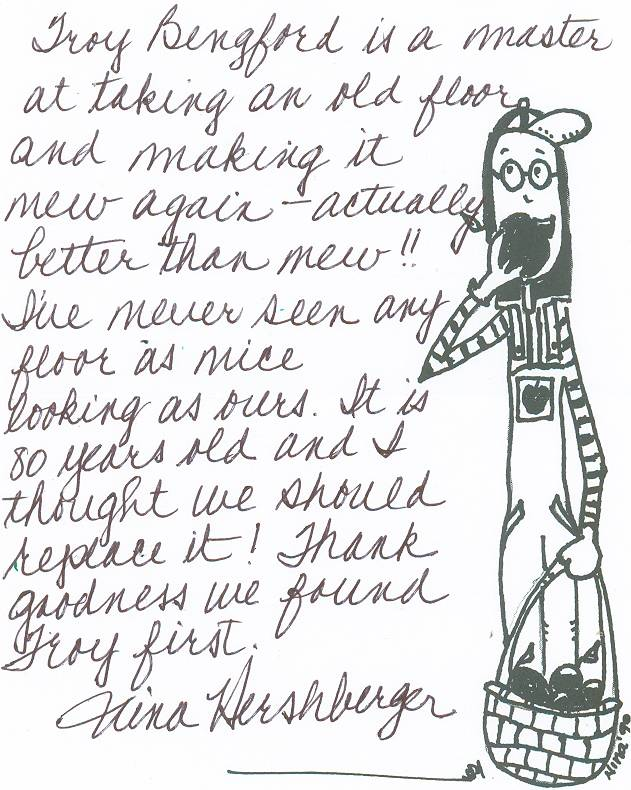 Troy Bengford is a master
at taking an old floor
and making it
new again – actually
better than new!!
I've never seen any
floor as nice
looking as ours. It is
80 years old and I
thought we should
replace it! Thank
goodness we found
Troy first.
Nina Hershberger
Nina '90